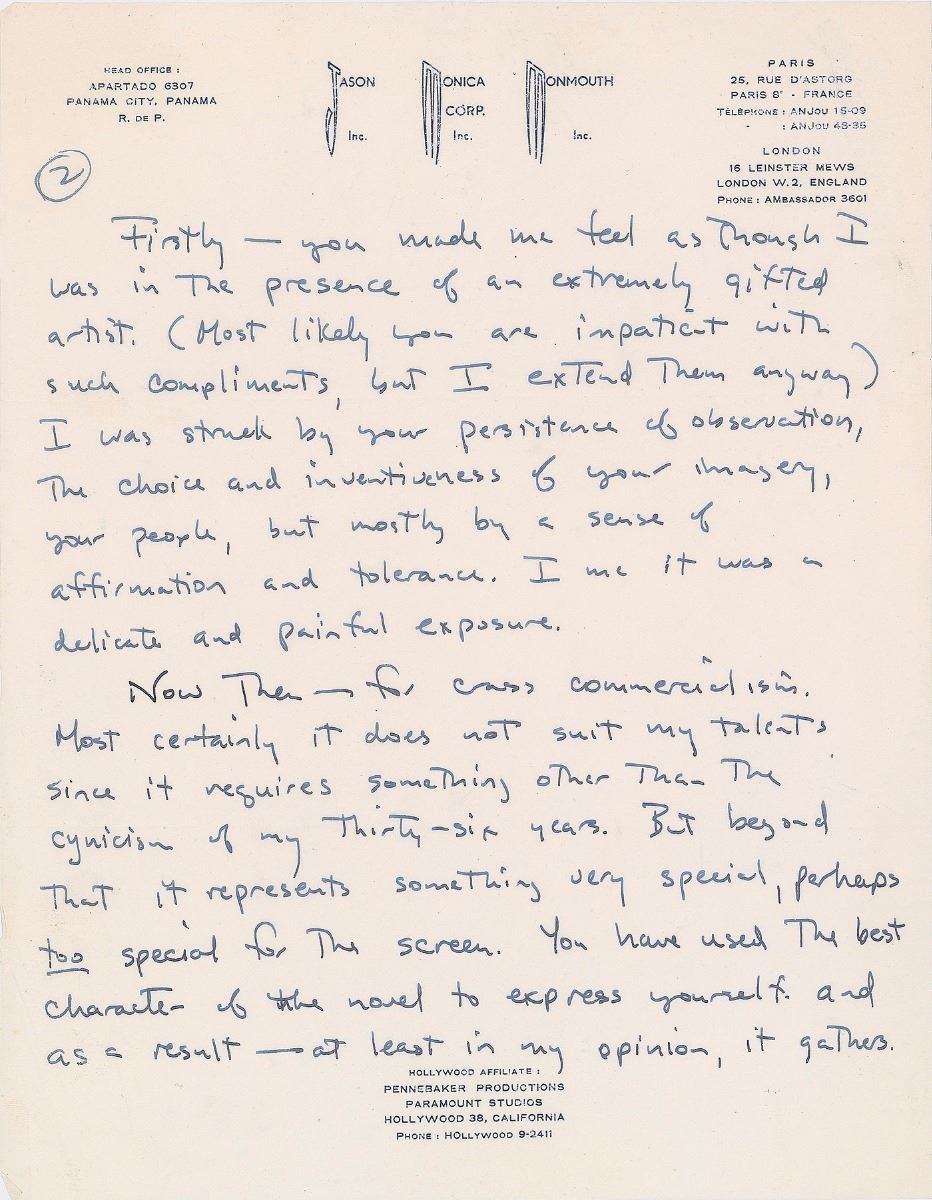 HEAD OFFICE :
APARTADO 6307
PANAMA CITY, PANAMA
R. DE P.
JASON
Inc.
MONICA
CORP.
Inc.
MONMOUTH
Inc.
PARIS
25, RUE D'ASTORG
PARIS 8e - FRANCE
TÉLÉPHONE : ANJOU 15-09
- : ANJOU 43-35
LONDON
16 LEINSTER MEWS
LONDON W.2, ENGLAND
PHONE : AMBASSADOR 3601
2
Firstly — you made me feel as though I
was in the presence of an extremely gifted
artist. (Most likely you are inpatient with
such compliments, but I extend them anyway)
I was struck by your persistance of observation,
the choice and inventiveness of your imagery,
your people, but mostly by a sense of
affirmation and tolerance. I me it was a
delicate and painful exposure.
Now then — for crass commercialism.
Most certainly it does not suit my talents
since it requires something other than the
cynicism of my thirty-six years. But beyond
that it represents something very special, perhaps
too special for the screen. You have used the best
character of the novel to express yourself. and
as a result — at least in my opinion, it gathers.
HOLLYWOOD AFFILIATE :
PENNEBAKER PRODUCTIONS
PARAMOUNT STUDIOS
HOLLYWOOD 38, CALIFORNIA
PHONE : HOLLYWOOD 9-2411